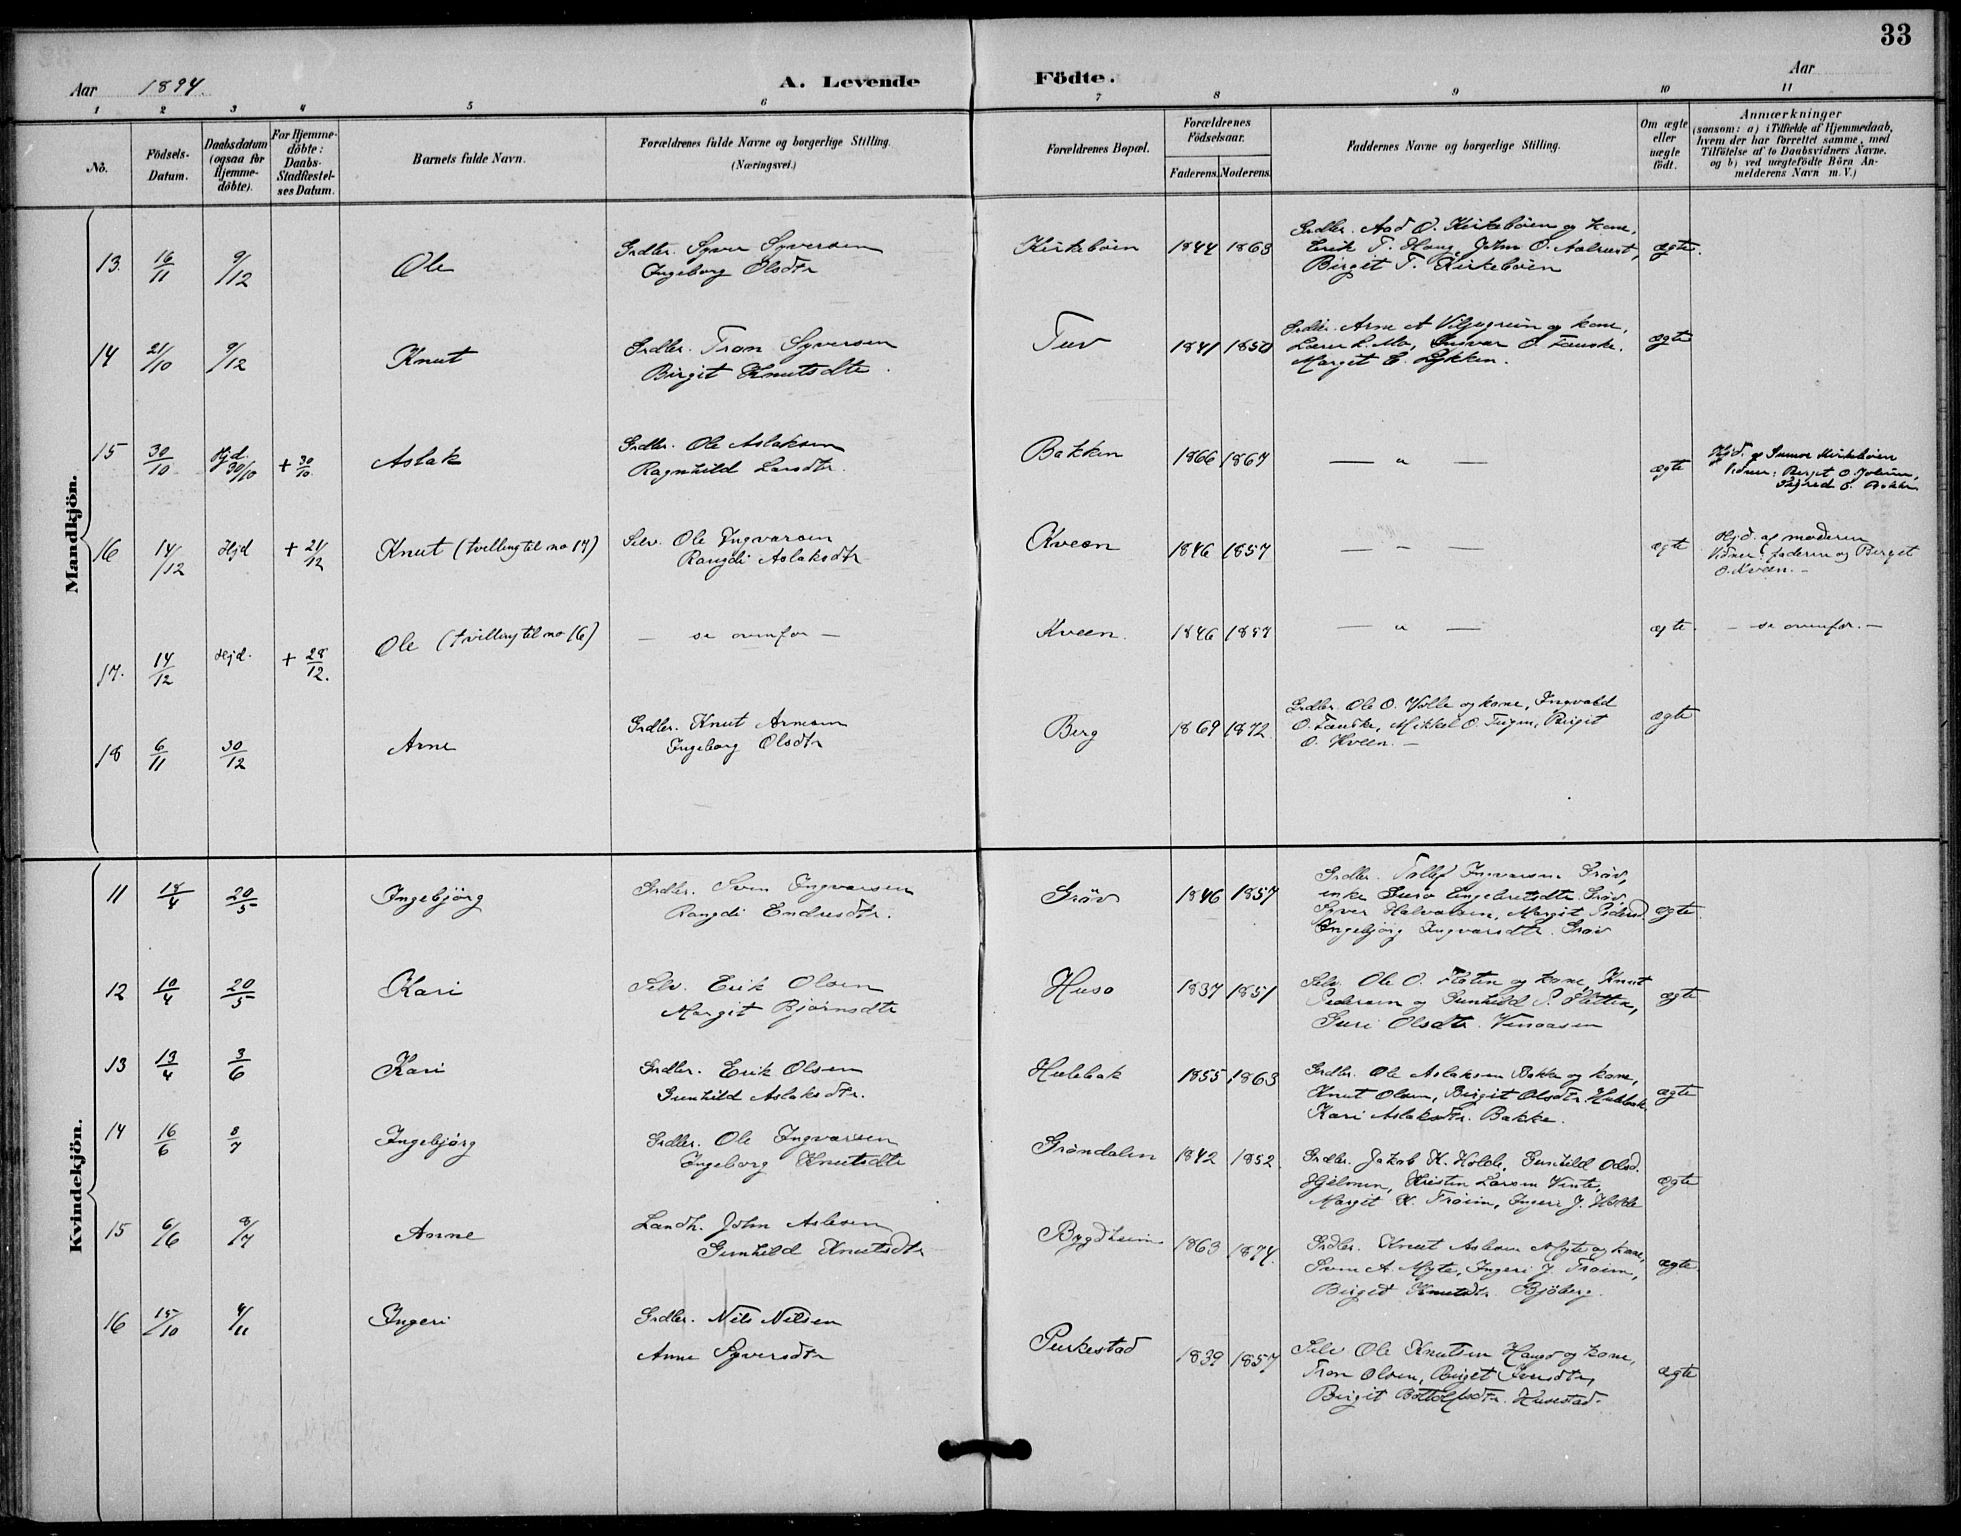 33
Aar 1894.
A. Levende Födte.
Aar
1 2 3 4 5 6 7 8 9 10 11
No.
Födsels-Datum.
Daabsdatum (ogsaa for Hjemme-döbte).
For Hjemme-döbte: Daabs-Stadfæstel-ses Datum.
Barnets fulde Navn.
Forældrenes fulde Navne og borgerlige Stilling.
(Næringsvei.)
Forældrenes Bopæl.
Forældrenes Födselsaar.
Faderens. Moderens.
Faddernes Navne og borgerlige Stilling.
Om ægte eller uægte født.
Anmærkninger
(saasom: a) i Tilfælde af Hjemmedaab,
hvem der har forrettet samme, med
Tilföielse af to Daabsvidners Navne.
og b) ved uægtefödte Börn An-
melderens Navn m. V.)
Mandkjön.
13. 16/11 9/12 Ole
Grdbr. Syver Syversen
Ingeborg Olsdtr
Kirkeböen 1844 1863
Grdbr. Aad O. Kirkeböen og kone,
Erik T. Haug, John O. Aalrust,
Birgit T. Kirkeböen
ægte.
14 21/10 9/12 Knut
Grdbr. Tron Syversen
Birgit Knutsdtr.
Tuv 1841 1850
Grdbr. Arne A. og kone,
Lærer L. Mo, Ingvar O. Fauske.
Margit E. Lykken.
ægte
15 30/10 Hjd. 30/10 + 30/10 Aslak
Grdbr. Ole Aslaksen
Ragnhild Larsdtr.
Bakken 1866 1867 — " — ægte
Hjd. af Kirkeböen
Vidner: Berget O.
O. Bakken
16 14/12 Hjd + 21/12 Knut (tvilling til no 17)
Selv. Ole Ingvarsen
Rangdi Aslaksdtr
Kveen 1846 1857 — " — ægte
Hjd. af moderen
Vidner: faderen og Berget
O. Kveen. -
17. 14/12 Hjd. + 28/12. Ole (tvilling til no 16)
— se ovenfor —
Kveen. 1846 1857 — " — ægte - se ovenfor. -
18 6/11 30/12 Arne
Grdbr. Knut Arnesen
Ingeborg Olsdtr
Berg 1869 1872.
Grdbr. Ole O. Volle og kone, Ingvald
O. Fauske, Mikkel O. Birgit
O. Kveen. —
ægte
Kvindekjön.
11 18/4 20/5 Ingebjörg
Grdbr. Sven Ingvarsen
Rangdi Endresdtr.
Gröv 1846 1857
Grdbr. Tollef Ingvarsen Gröv,
enke Guro Engebretsdtr Gröv,
Syver Halvorsen, Margit Pedersd.
Ingebjörg Ingvarsdtr. Gröv
ægte.
12 10/4 20/5 Kari
Selv. Erik Olsen
Margit Björnsdtr
Huso 1837 1851
Selv. Ole O. Floten og kone, Knut
Pedersen og Gunhild P.
Guri Olsdtr.
ægte
13 13/4 3/6 Kari
Grdbr. Erik Olsen
Gunhild Aslaksdtr.
Hulebak 1855 1863
Grdbr. Ole Aslaksen Bakke og kone,
Knut Olsen, Birgit Olsdtr. Hulebak.
Kari Aslaksdtr. Bakke.
ægte
14 16/6 8/7 Ingebjörg
Grdbr. Ole Ingvarsen
Ingeborg Knutsdtr
Gröndalen 1842 1852.
Grdbr. Jakob K. Holde, Gunhild Olsd.
Hjelmen, Kristen Larsen Vinte,
Margit K. Tröim, Ingeri J. Holde
ægte
15 6/6 8/7 Anne
Landh. John Aslesen
Gunhild Knutsdtr
Bygdheim 1863 1874.
Grdbr. Knut Aslesen Myte og kone,
Sven A. Myte, Ingeri J. Tröim,
Birgit Knutsdtr Björberg.
ægte.
16 15/10 4/11 Ingeri
Grdbr. Nils Nilsen
Anne Syversdtr
Perkestad 1839 1857
Selv Ole Knutsen og kone,
Tron Olsen, Birget
Birgit Botolfsdtr. Husestad.
ægte